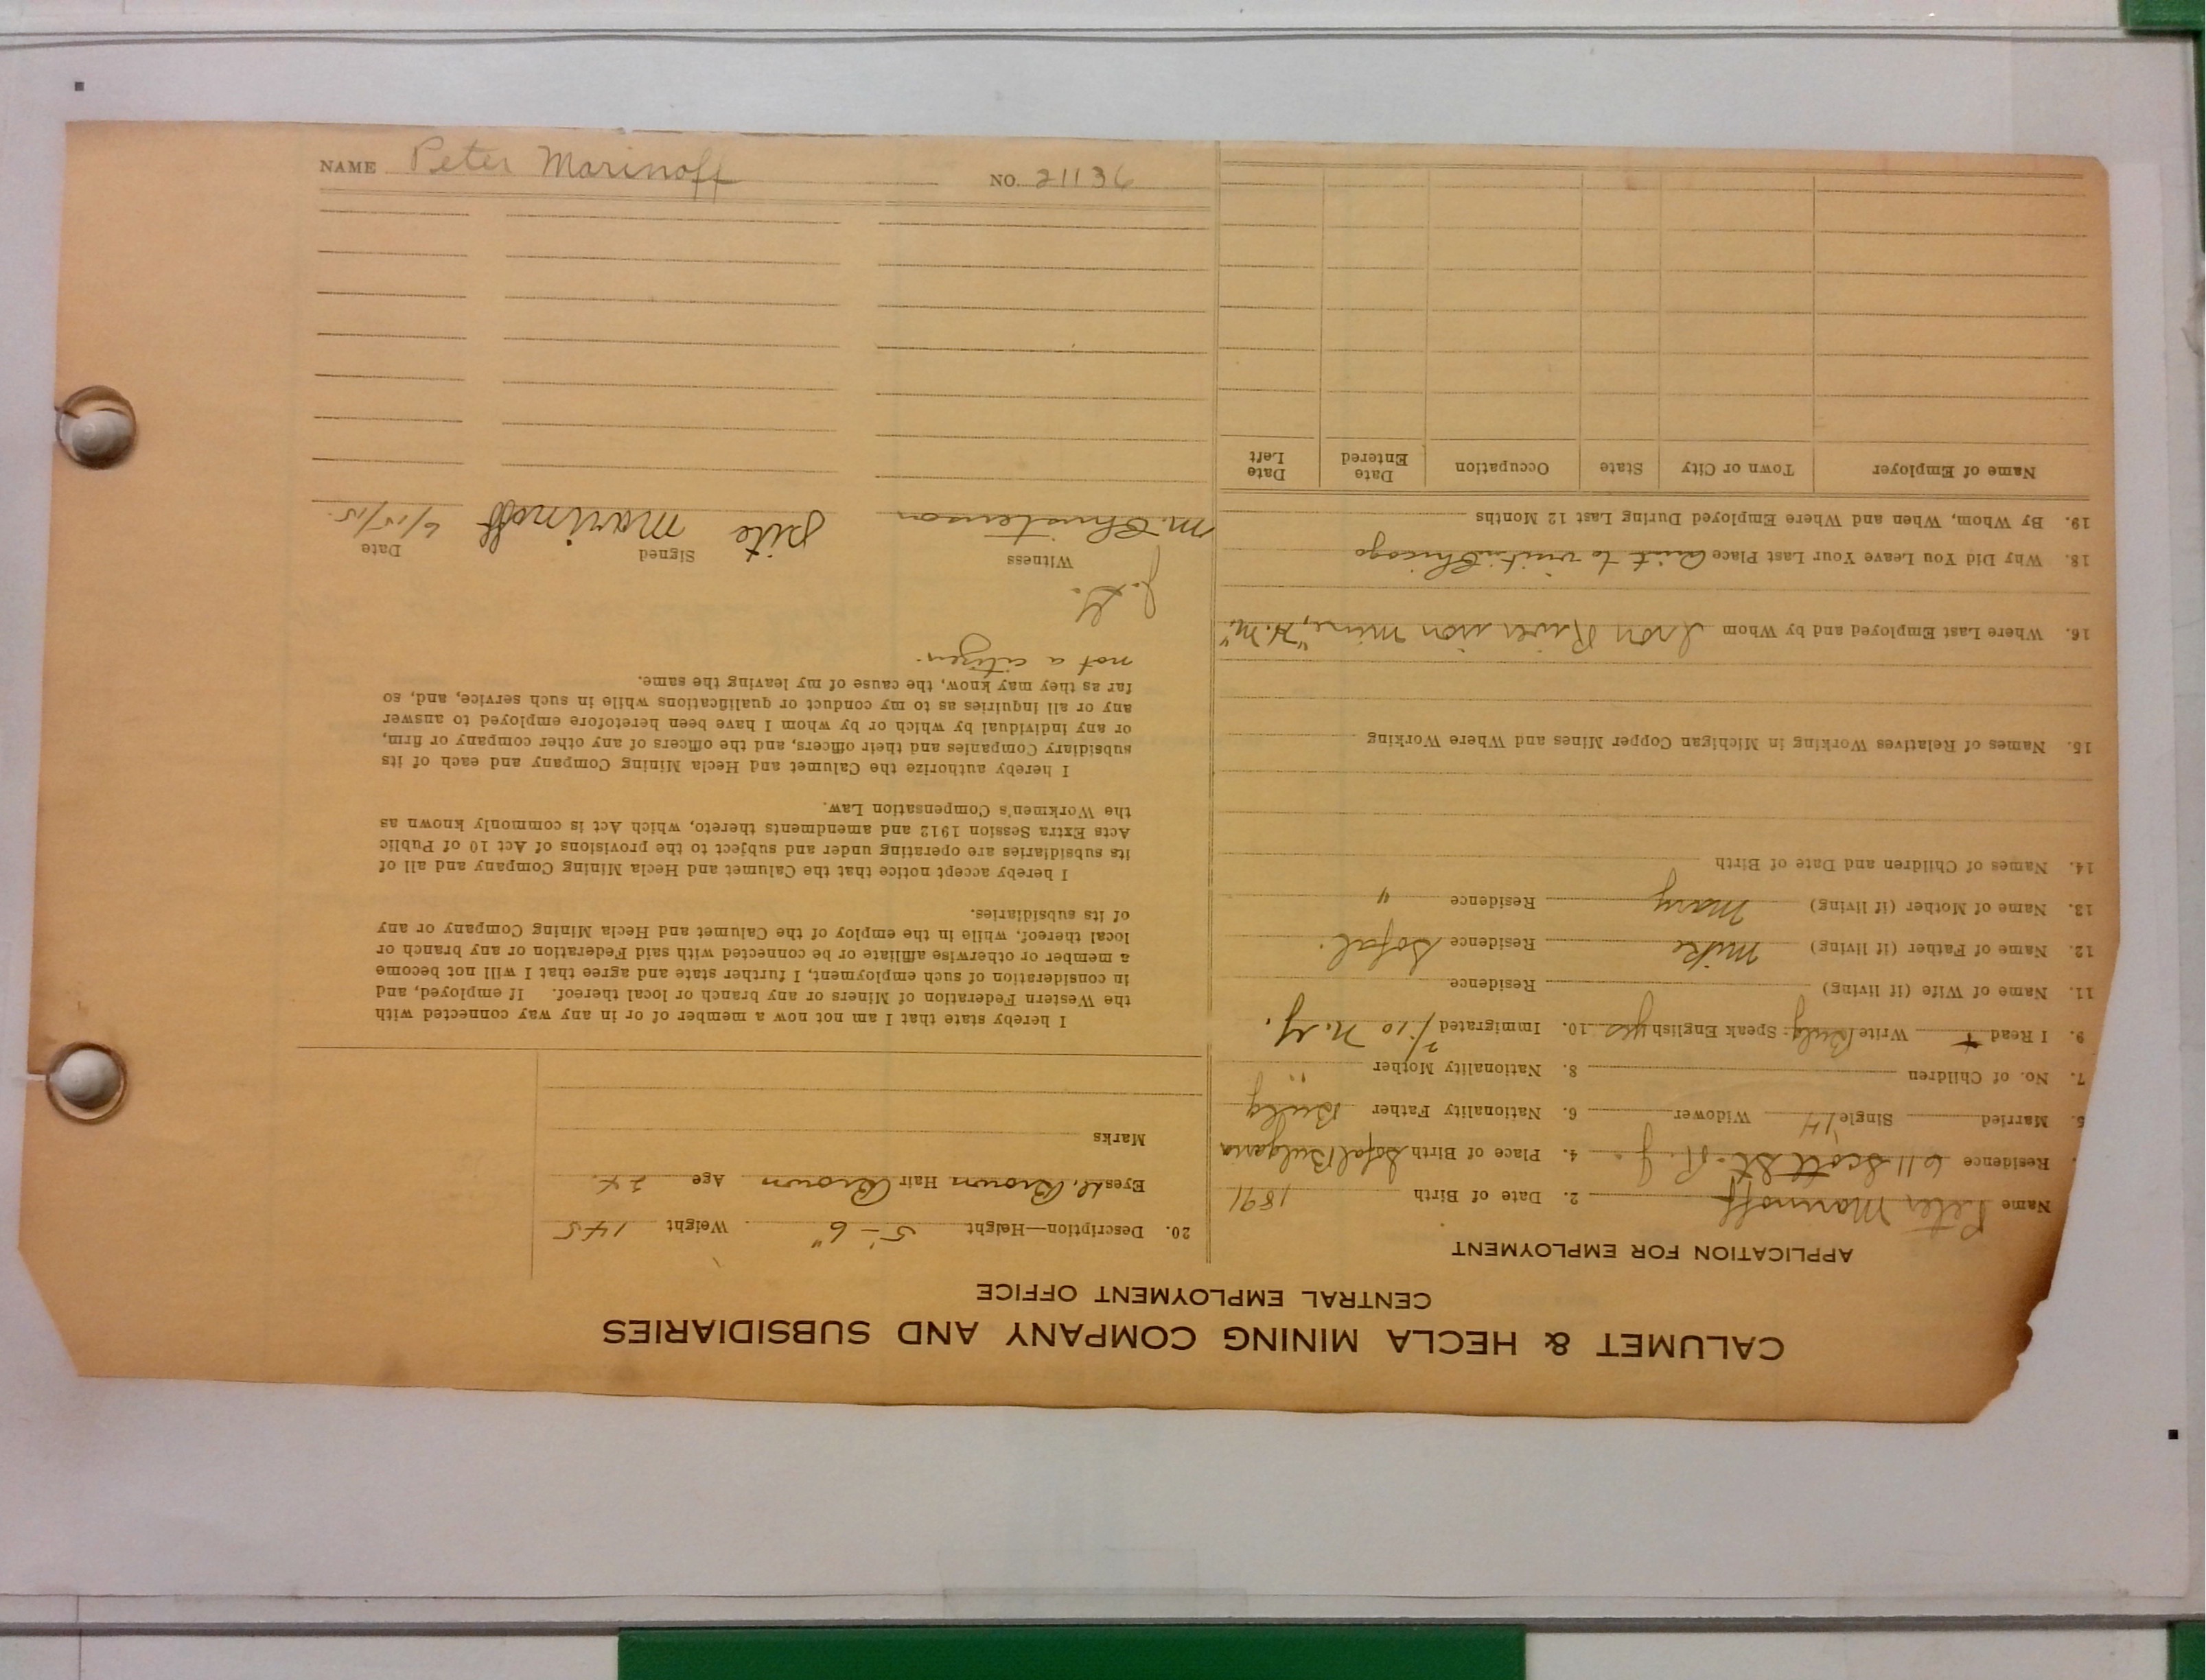 NAME Peter Marinoff NO. 21136
CALUMET & HECLA MINING COMPANY AND SUBSIDIARIES
CENTRAL EMPLOYMENT OFFICE
APPLICATION FOR EMPLOYMENT
Name Peter Marinoff 2. Date of Birth 1891
Residence 611 Scott St. 4. Place of Birth Sofal Bulgaria
5. Married Single Widower 6. Nationality Father Bulg
7. No. of Children 8. Nationality Mother "
9. I Read + Write Bulg: Speak English yes 10. Immigrated 2/10 N.Y.
11. Name of Wife (if living) Residence
12. Name of Father (if living) Mike Residence Sofal.
13. Name of Mother (if living) Mary Residence "
14. Names of Children and Date of Birth
15. Names of Relatives Working in Michigan Copper Mines and Where Working
16. Where Last Employed and by Whom Iron River iron mine, "H.M."
18. Why Did You Leave Your Last Place Quit to visit Chicago
19. By Whom, When and Where Employed During Last 12 Months
Name of Employer Town or City State Occupation Date Entered Date Left
20. Description—Height 5'-6" Weight 145
Eyes Brown Hair Brown Age 24.
Marks
I hereby state that I am not now a member of or in any way connected with
the Western Federation of Miners or any branch or local thereof. If employed, and
in consideration of such employment, I further state and agree that I will not become
a member or otherwise affiliate or be connected with said Federation or any branch or
local thereof, while in the employ of the Calumet and Hecla Mining Company or any
of its subsidiaries.
I hereby accept notice that the Calumet and Hecla Mining Company and all of
its subsidiaries are operating under and subject to the provisions of Act 10 of Public
Acts Extra Session 1912 and amendments thereto, which Act is commonly known as
the Workmen's Compensation Law.
I hereby authorize the Calumet and Hecla Mining Company and each of its
subsidiary Companies and their officers, and the officers of any other company or firm,
or any individual by which or by whom I have been heretofore employed to answer
any or all inquiries as to my conduct or qualifications while in such service, and, so
far as they may know, the cause of my leaving the same.
not a citizen.
Witness Signed Date
M. Christenson Pite Marinoff 6/15/15.